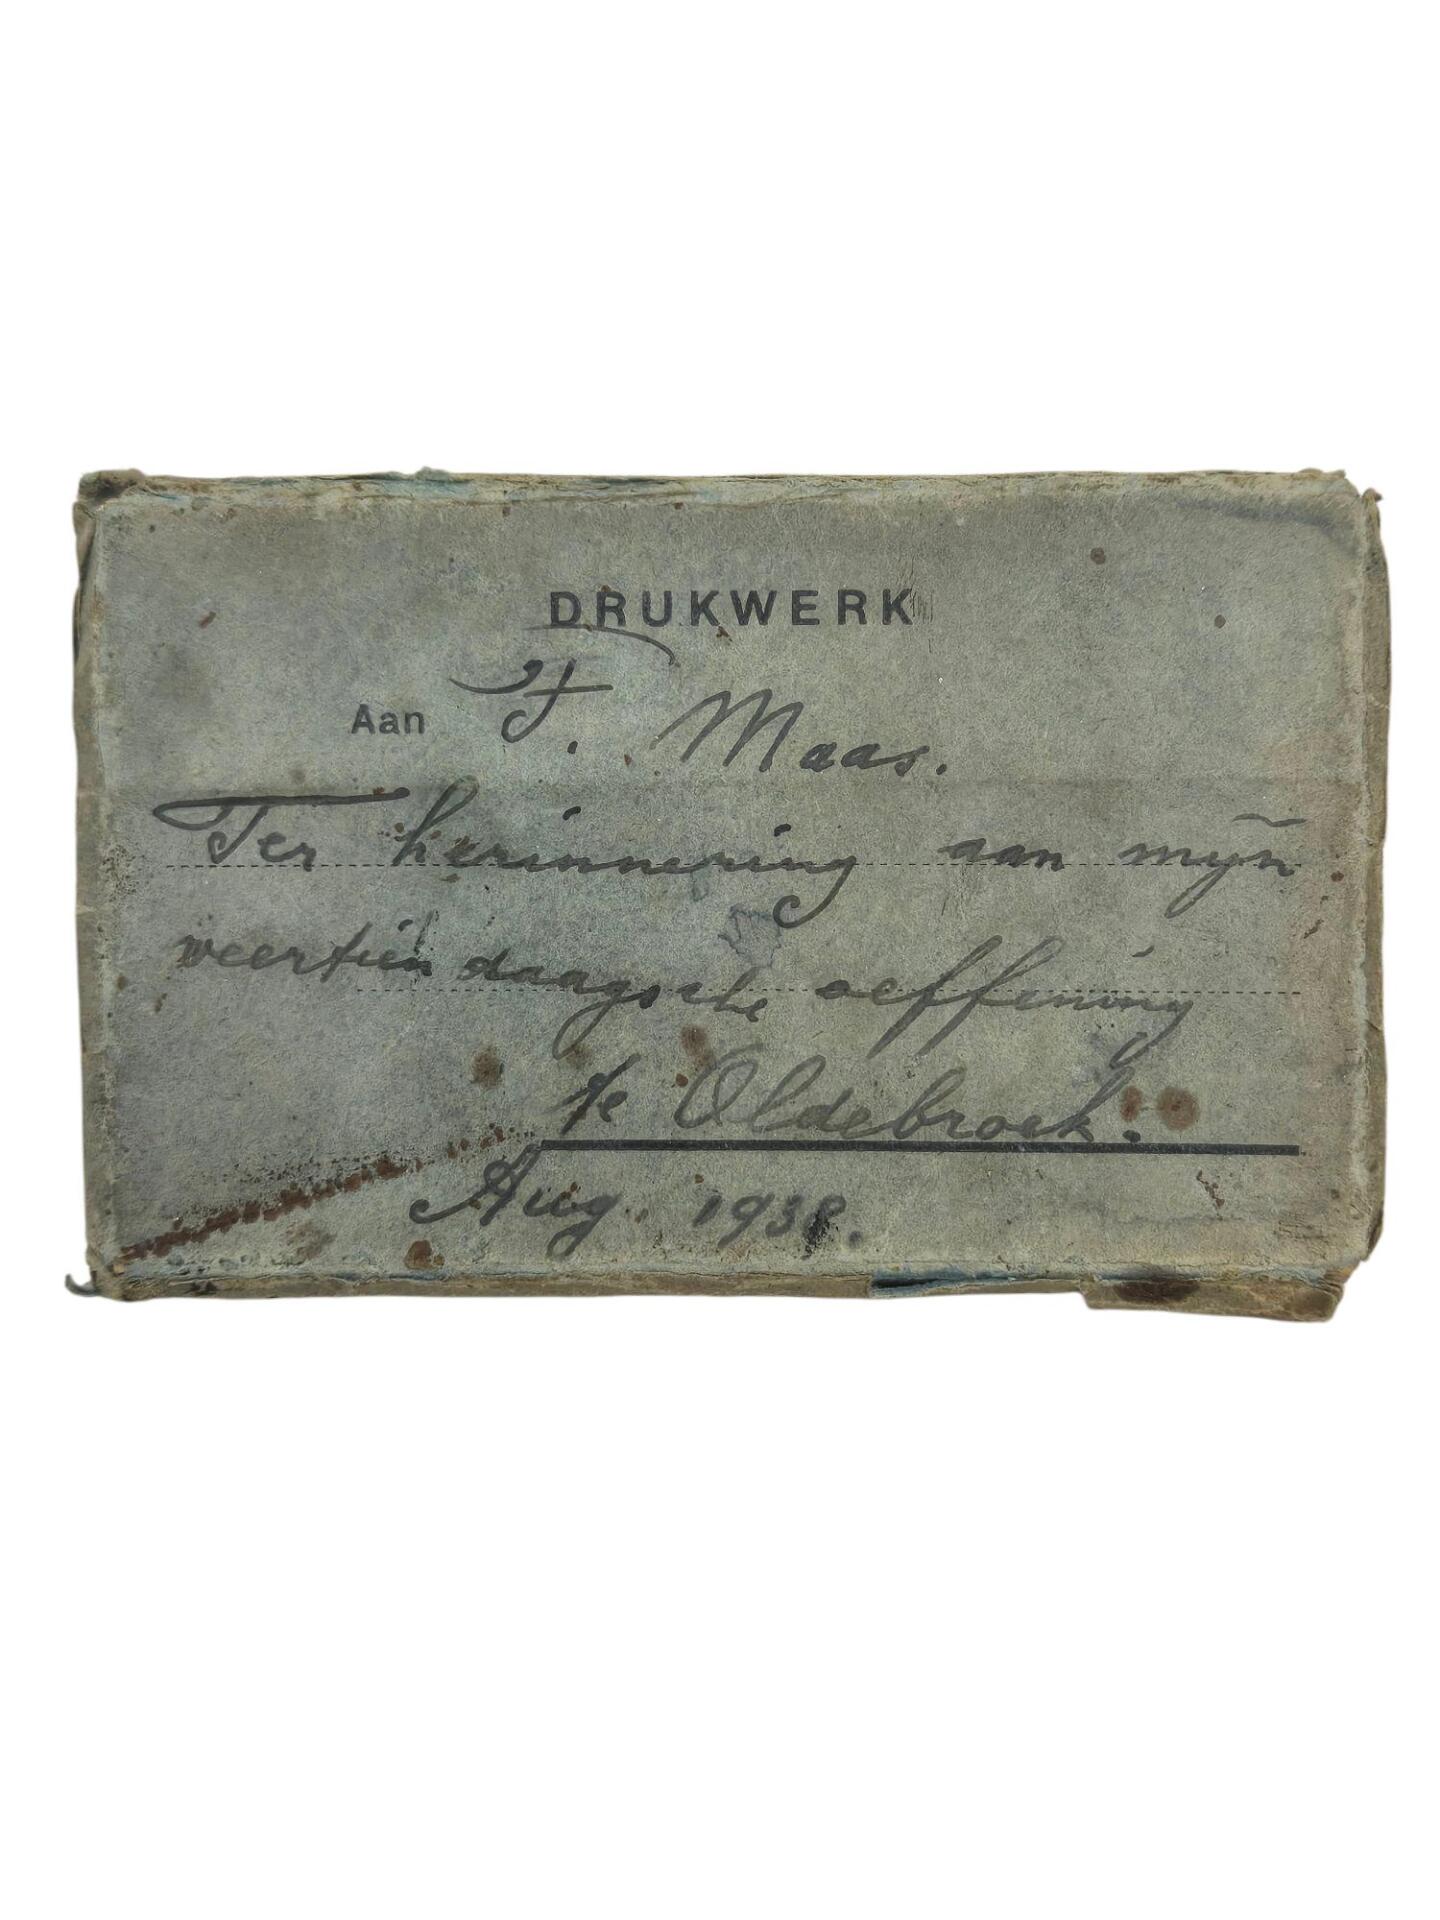 DRUKWERK
Aan F. Maas.
Ter herinnering aan mijn
veertien daagsche oeffening
te Oldebroek.
Aug. 1938.